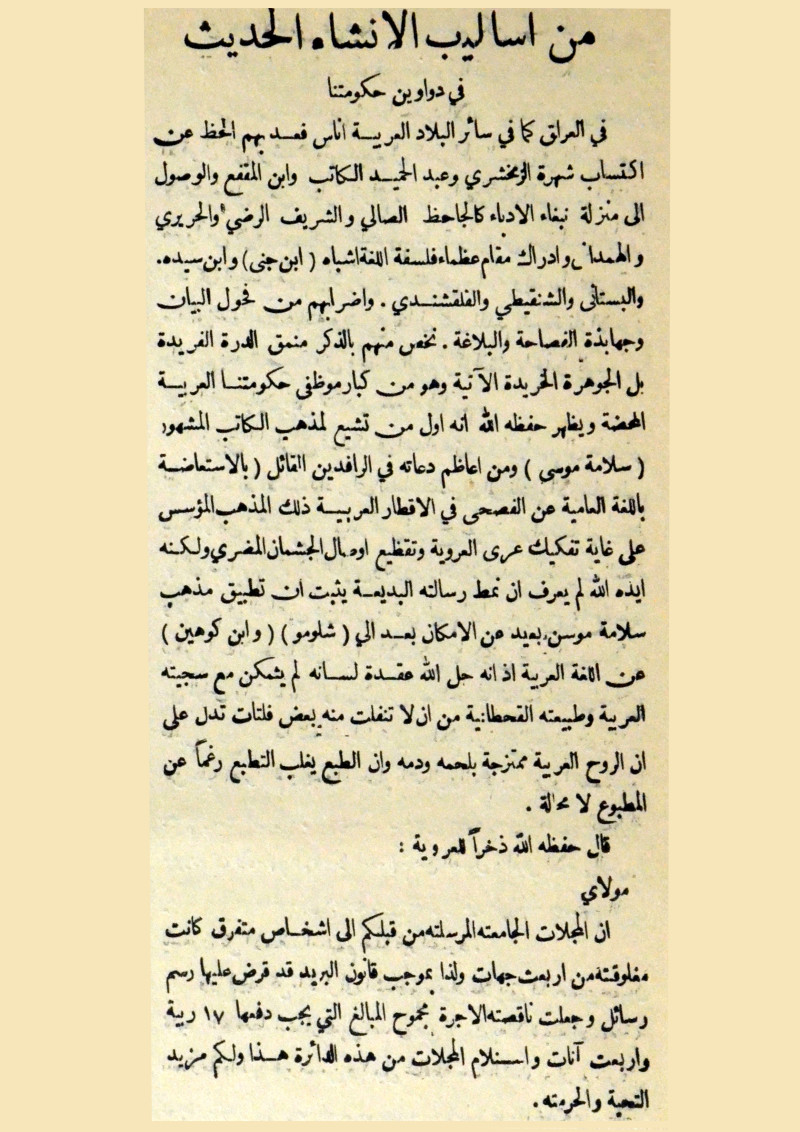 من اساليب الانشاء الحديث
في دواوين حكومتنا
في العراق كما في سائر البلاد العربية اناس قعد بهم الحظ عن
اكتساب شهرة الزمخشري وعبد الحميد الكاتب وابن المقفع والوصول
الى منزلة نبغاء الادباء كالجاحظ الصالي والشريف الرضي والحريري
والهمداني وادراك مقام عظماء فلسفة اللغة اشباه ( ابن جنى ) وابن سيده.
والبستاني والشنقيطي والقلقشندي . واضرابهم من فحول البيان
وجهابذة الفصاحة والبلاغة . نخص منهم بالذكر منمق الدرة الفريدة
بل الجوهرة الخريدة الآتية وهو من كبار موظفى حكومتنا العربية
المحضة ويظهر حفظه الله انه اول من تشيع لمذهب الكاتب المشهور
( سلامة موسى ) ومن اعاظم دعاته في الرافدين القائل ( بالاستعاضة
باللغة العامية عن الفصحى في الاقطار العربية ذلك المذهب المؤسس
على غاية تفكيك عرى العروبة وتقظيع اوصال الجشمان المضري ولكنه
ايده الله لم يعرف ان نمط رسالته البديعة يثبت ان تطبيق مذهب
سلامة موسى بعيد عن الامكان بعد الي ( شلومو ) ( وابن كوهين )
عن اللغة العربية اذ انه حل الله عقدة لسانه لم يتمكن مع سجيته
العربية وطبيعته القحطانية من ان لا تنفلت منه بعض فلتات تدل على
ان الروح العربية ممتزجة بلحمه ودمه وان الطبع يغلب التطبع رغماً عن
المطبوع لا محالة .
قال حفظه الله ذخراً للعروبة :
مولاي
ان المجلات الجامعته المرسلته من قبلكم الى اشخاص متفرق كانت
مغلوقته من اربعت جهات ولذا بموجب قانون البريد قد قرض عليها رسم
رسائل وجعلت ناقصته الاجرة مجموح المبالغ التي يجب دفعها ١٧ ربية
واربعت آنات واستلام المجلات من هذه الدائرة هذا ولكم مزيد
التحية والحرمته .